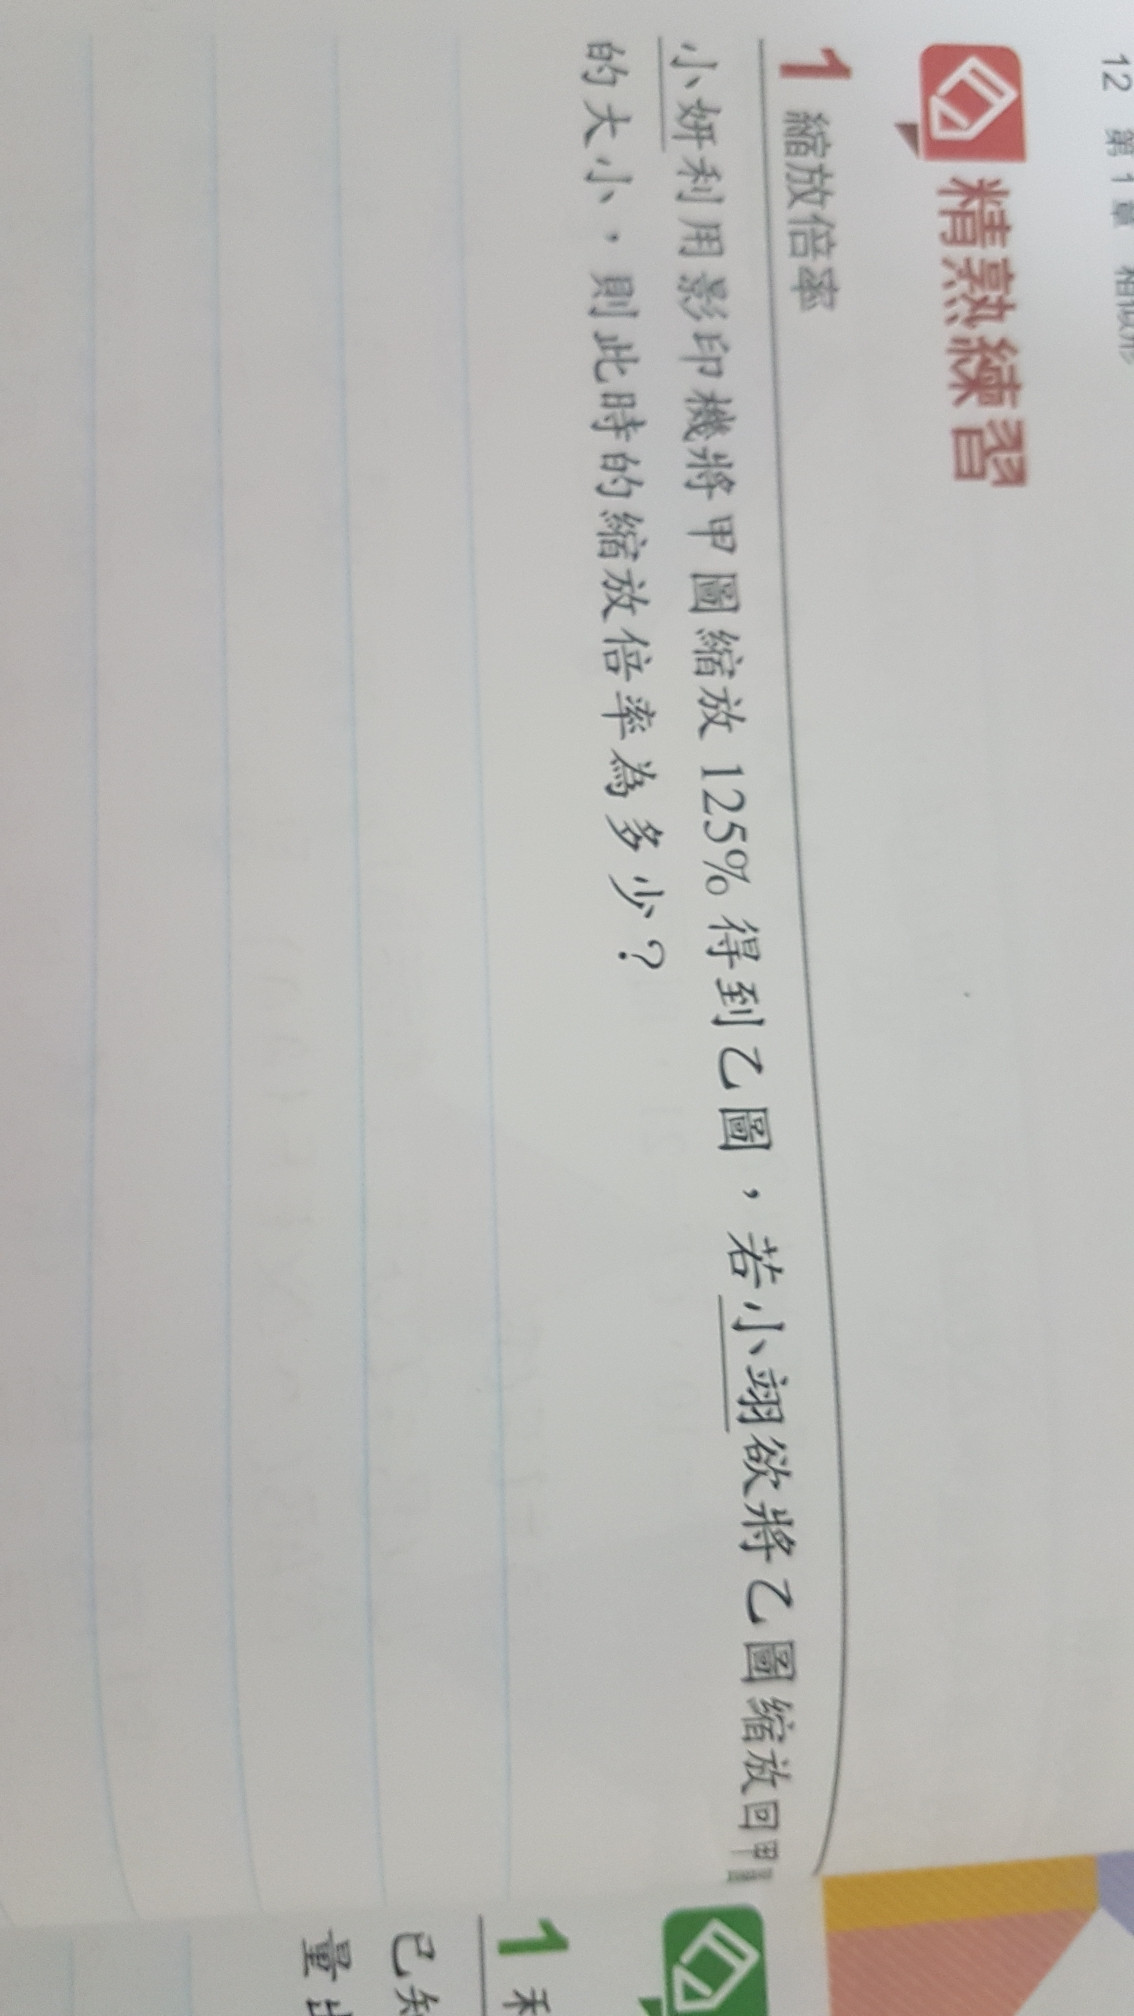 12 第1章 相似形
精熟練習
1 縮放倍率
小妍利用影印機將甲圖縮放125%得到乙圖，若小翊欲將乙圖縮放回甲圖
的大小，則此時的縮放倍率為多少？
1
已知
量出